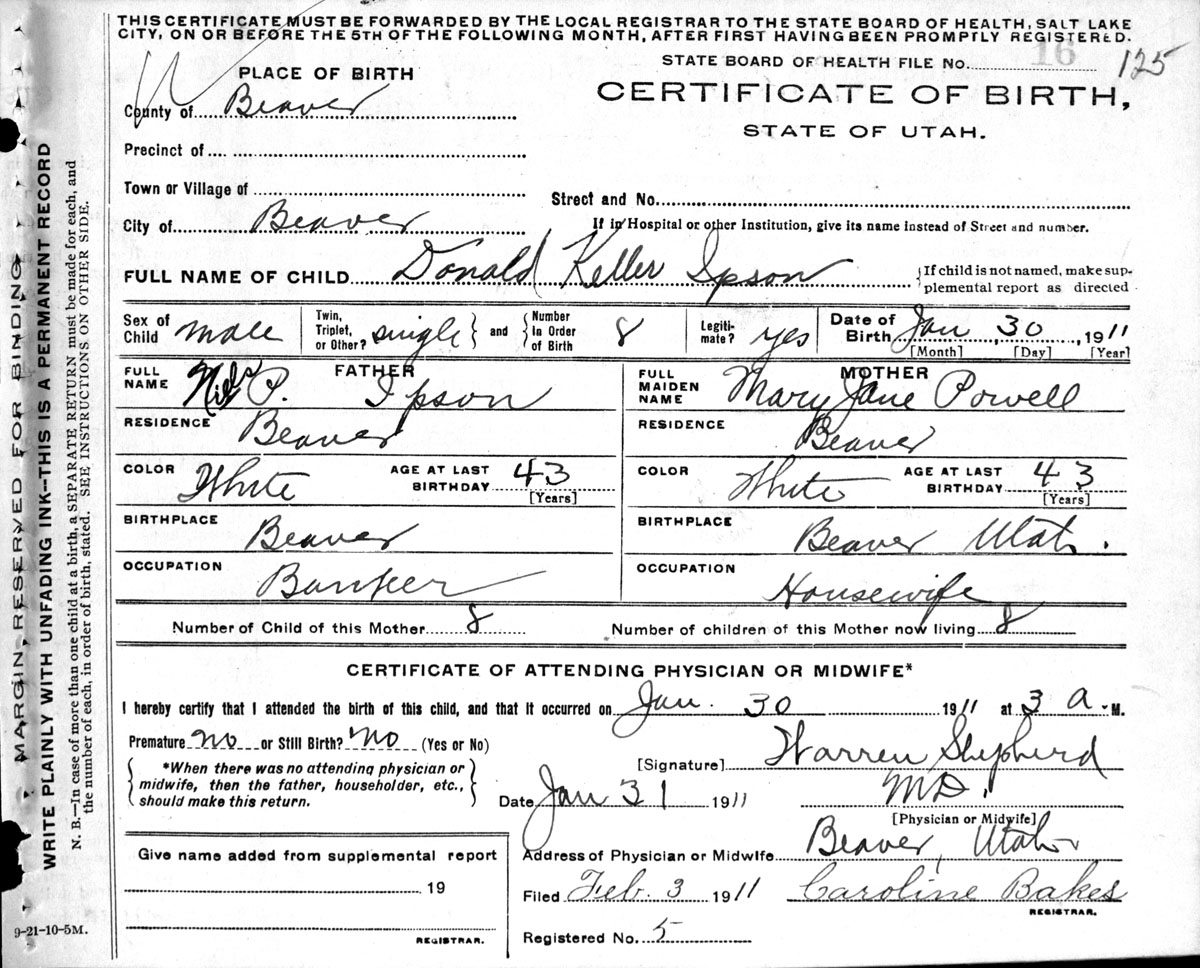 THIS CERTIFICATE MUST BE FORWARDED BY THE LOCAL REGISTRAR TO THE STATE BOARD OF HEALTH, SALT LAKE
CITY, ON OR BEFORE THE 5TH OF THE FOLLOWING MONTH, AFTER FIRST HAVING BEEN PROMPTLY REGISTERED.
STATE BOARD OF HEALTH FILE NO. 16 125
PLACE OF BIRTH
CERTIFICATE OF BIRTH,
STATE OF UTAH.
County of Beaver
Precinct of
Town or Village of
Street and No.
City of Beaver
If in Hospital or other Institution, give its name instead of Street and number.
FULL NAME OF CHILD Donald Keller Ipson
{If child is not named, make sup-
plemental report as directed
Sex of Child male
Twin, Triplet, or Other? single } and { Number In Order of Birth 8
Legiti-mate? yes
Date of Birth Jan 30, 1911
[Month] [Day] [Year]
FATHER
FULL NAME Niels P. Ipson
MOTHER
FULL MAIDEN NAME Mary Jane Powell
RESIDENCE Beaver
RESIDENCE Beaver
COLOR White AGE AT LAST BIRTHDAY 43 [Years]
COLOR White AGE AT LAST BIRTHDAY 43 [Years]
BIRTHPLACE Beaver
BIRTHPLACE Beaver Utah.
OCCUPATION Banker
OCCUPATION Housewife
Number of Child of this Mother 8 Number of children of this Mother now living 8
CERTIFICATE OF ATTENDING PHYSICIAN OR MIDWIFE*
I hereby certify that I attended the birth of this child, and that it occurred on Jan. 30 1911 at 3 a.M.
Premature No or Still Birth? No (Yes or No)
{ *When there was no attending physician or
midwife, then the father, householder, etc.,
should make this return. }
[Signature] Warren Shepherd
Date Jan 31 1911 M.D.
[Physician or Midwife]
Give name added from supplemental report
19
REGISTRAR.
Address of Physician or Midwife Beaver, Utah
Filed Feb. 3 1911 Caroline Bakes
REGISTRAR.
Registered No. 5
9-21-10-5M.
MARGIN RESERVED FOR BINDING
WRITE PLAINLY WITH UNFADING INK—THIS IS A PERMANENT RECORD
N. B.—In case of more than one child at a birth, a SEPARATE RETURN must be made for each, and
the number of each, in order of birth, stated. SEE INSTRUCTIONS ON OTHER SIDE.